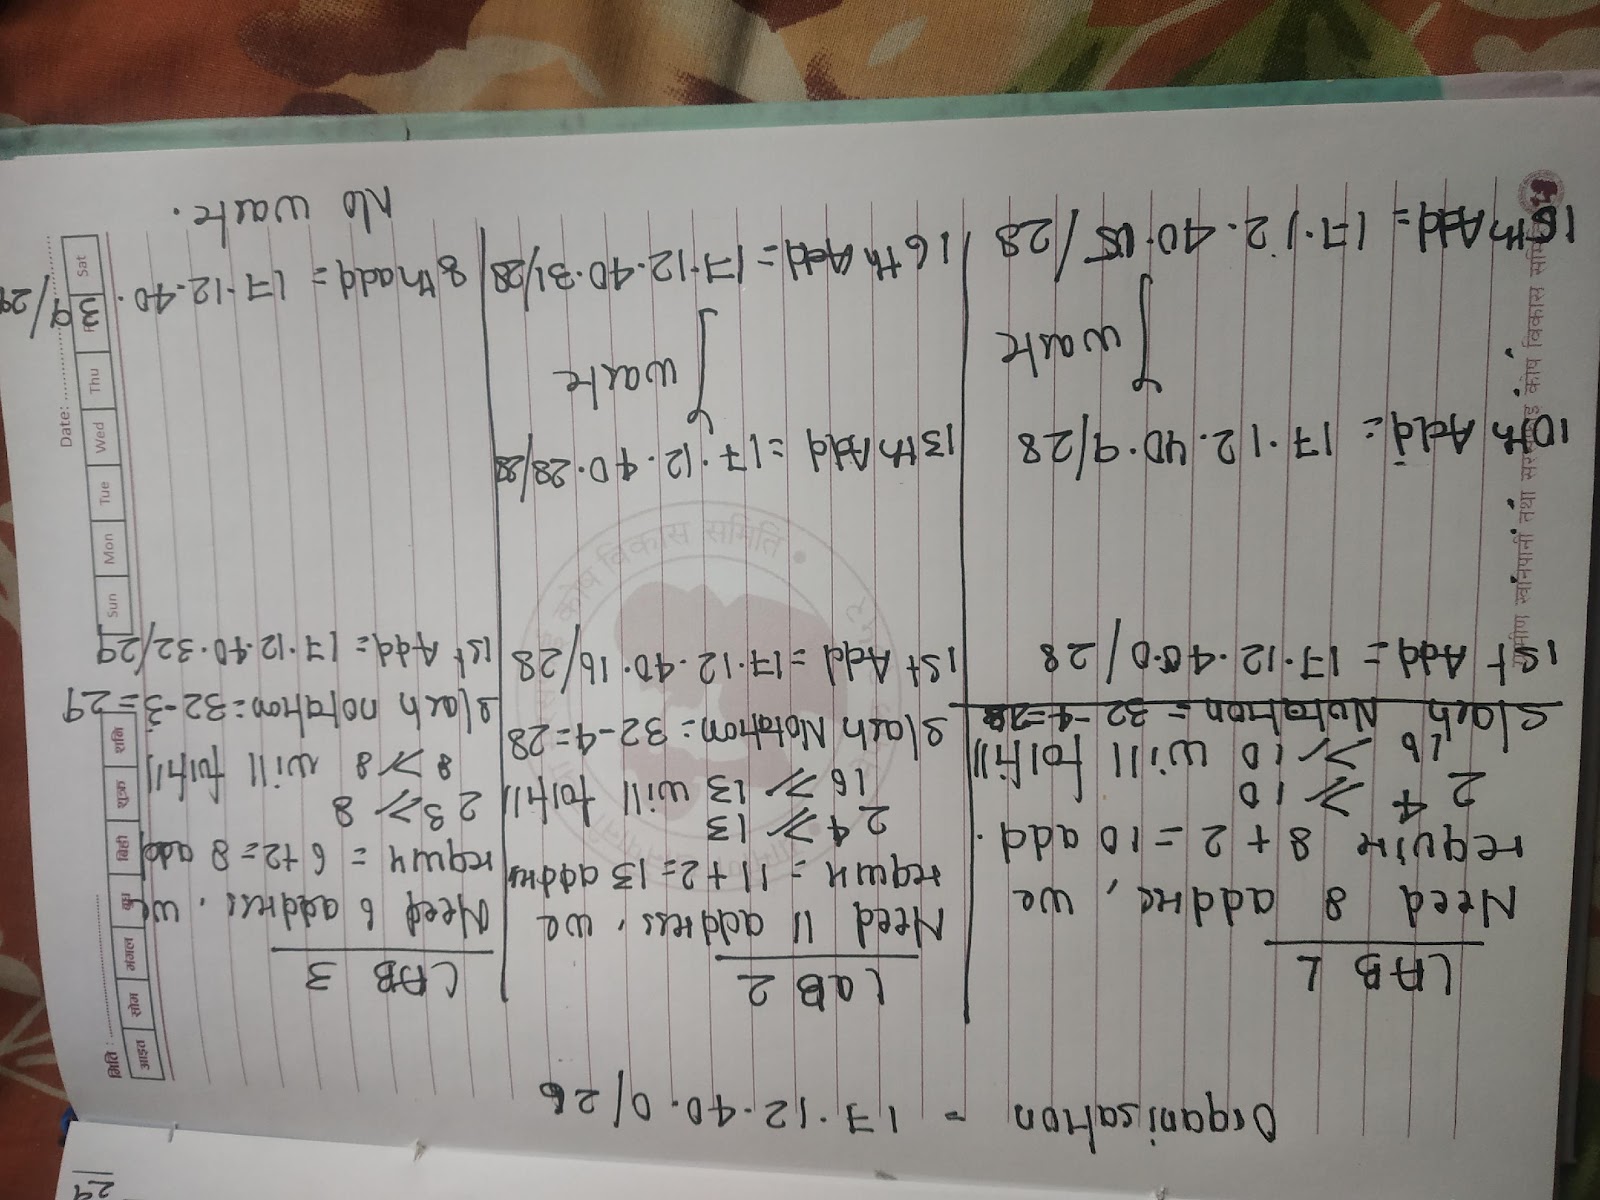 29
Organisation = 17.12.40.0/26
LAB 1
Need 8 addre, we
require 8 + 2 = 10 add.
2^4 ≥ 10
16 ≥ 10 will folfill
Slash Notation = 32-4=28
1st Add = 17.12.40.0/28
10th Add = 17.12.40.9/28
waste
16th Add = 17.12.40.15/28
LaB 2
Need 11 address, we
requir = 11+2=13 addre
2^4 ≥ 13
16 ≥ 13 will folfill
slash Notation = 32-4=28
1st Add = 17.12.40.16/28
13th Add = 17.12.40.28/28
waste
16th Add = 17.12.40.31/28
LAB 3
Need 6 address, we
requir = 6+2=8 add
2^3 ≥ 8
8 ≥ 8 will folfill
slash notation = 32-3=29
1st Add = 17.12.40.32/29
8th add = 17.12.40.
39/29
No waste.
मिति :
Date:
आइत सोम मंगल बुध बिही शुक्र शनि
Sun Mon Tue Wed Thu Sat